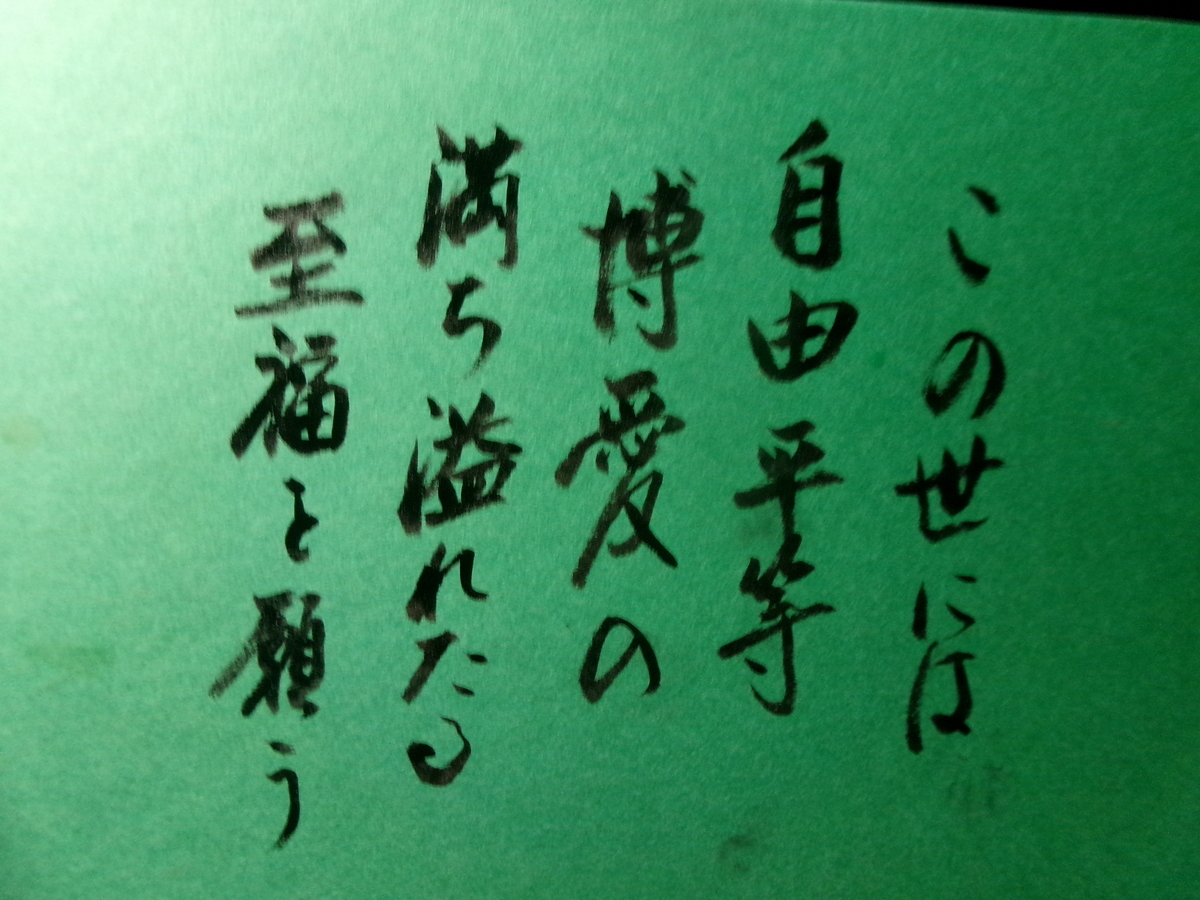 この世には
自由平等
博愛の
満ち溢れたる
至福を願う